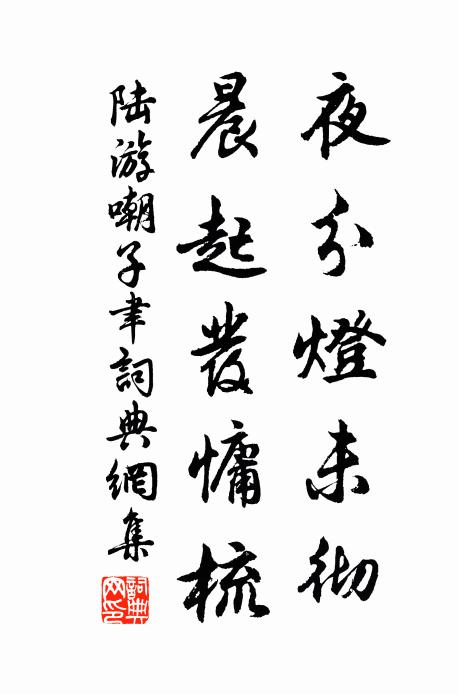 夜分燈未彻
晨起發慵梳
陸游嘲子聿詞典網集
詞典网印